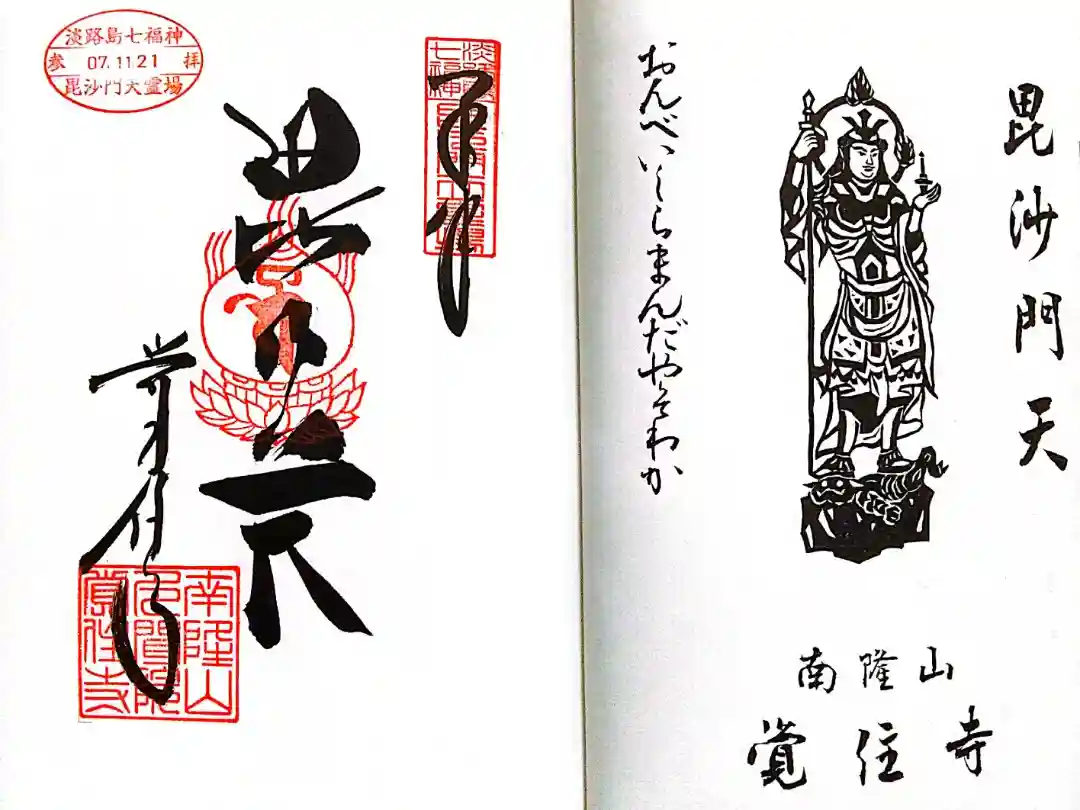 毘沙門天
おんべいしらまんだやそわか
南隆山
覚住寺
奉拝
淡路島七福神
参 07.11.21 拝
毘沙門天霊場
毘沙門天
覚住寺
南隆山
覚住寺